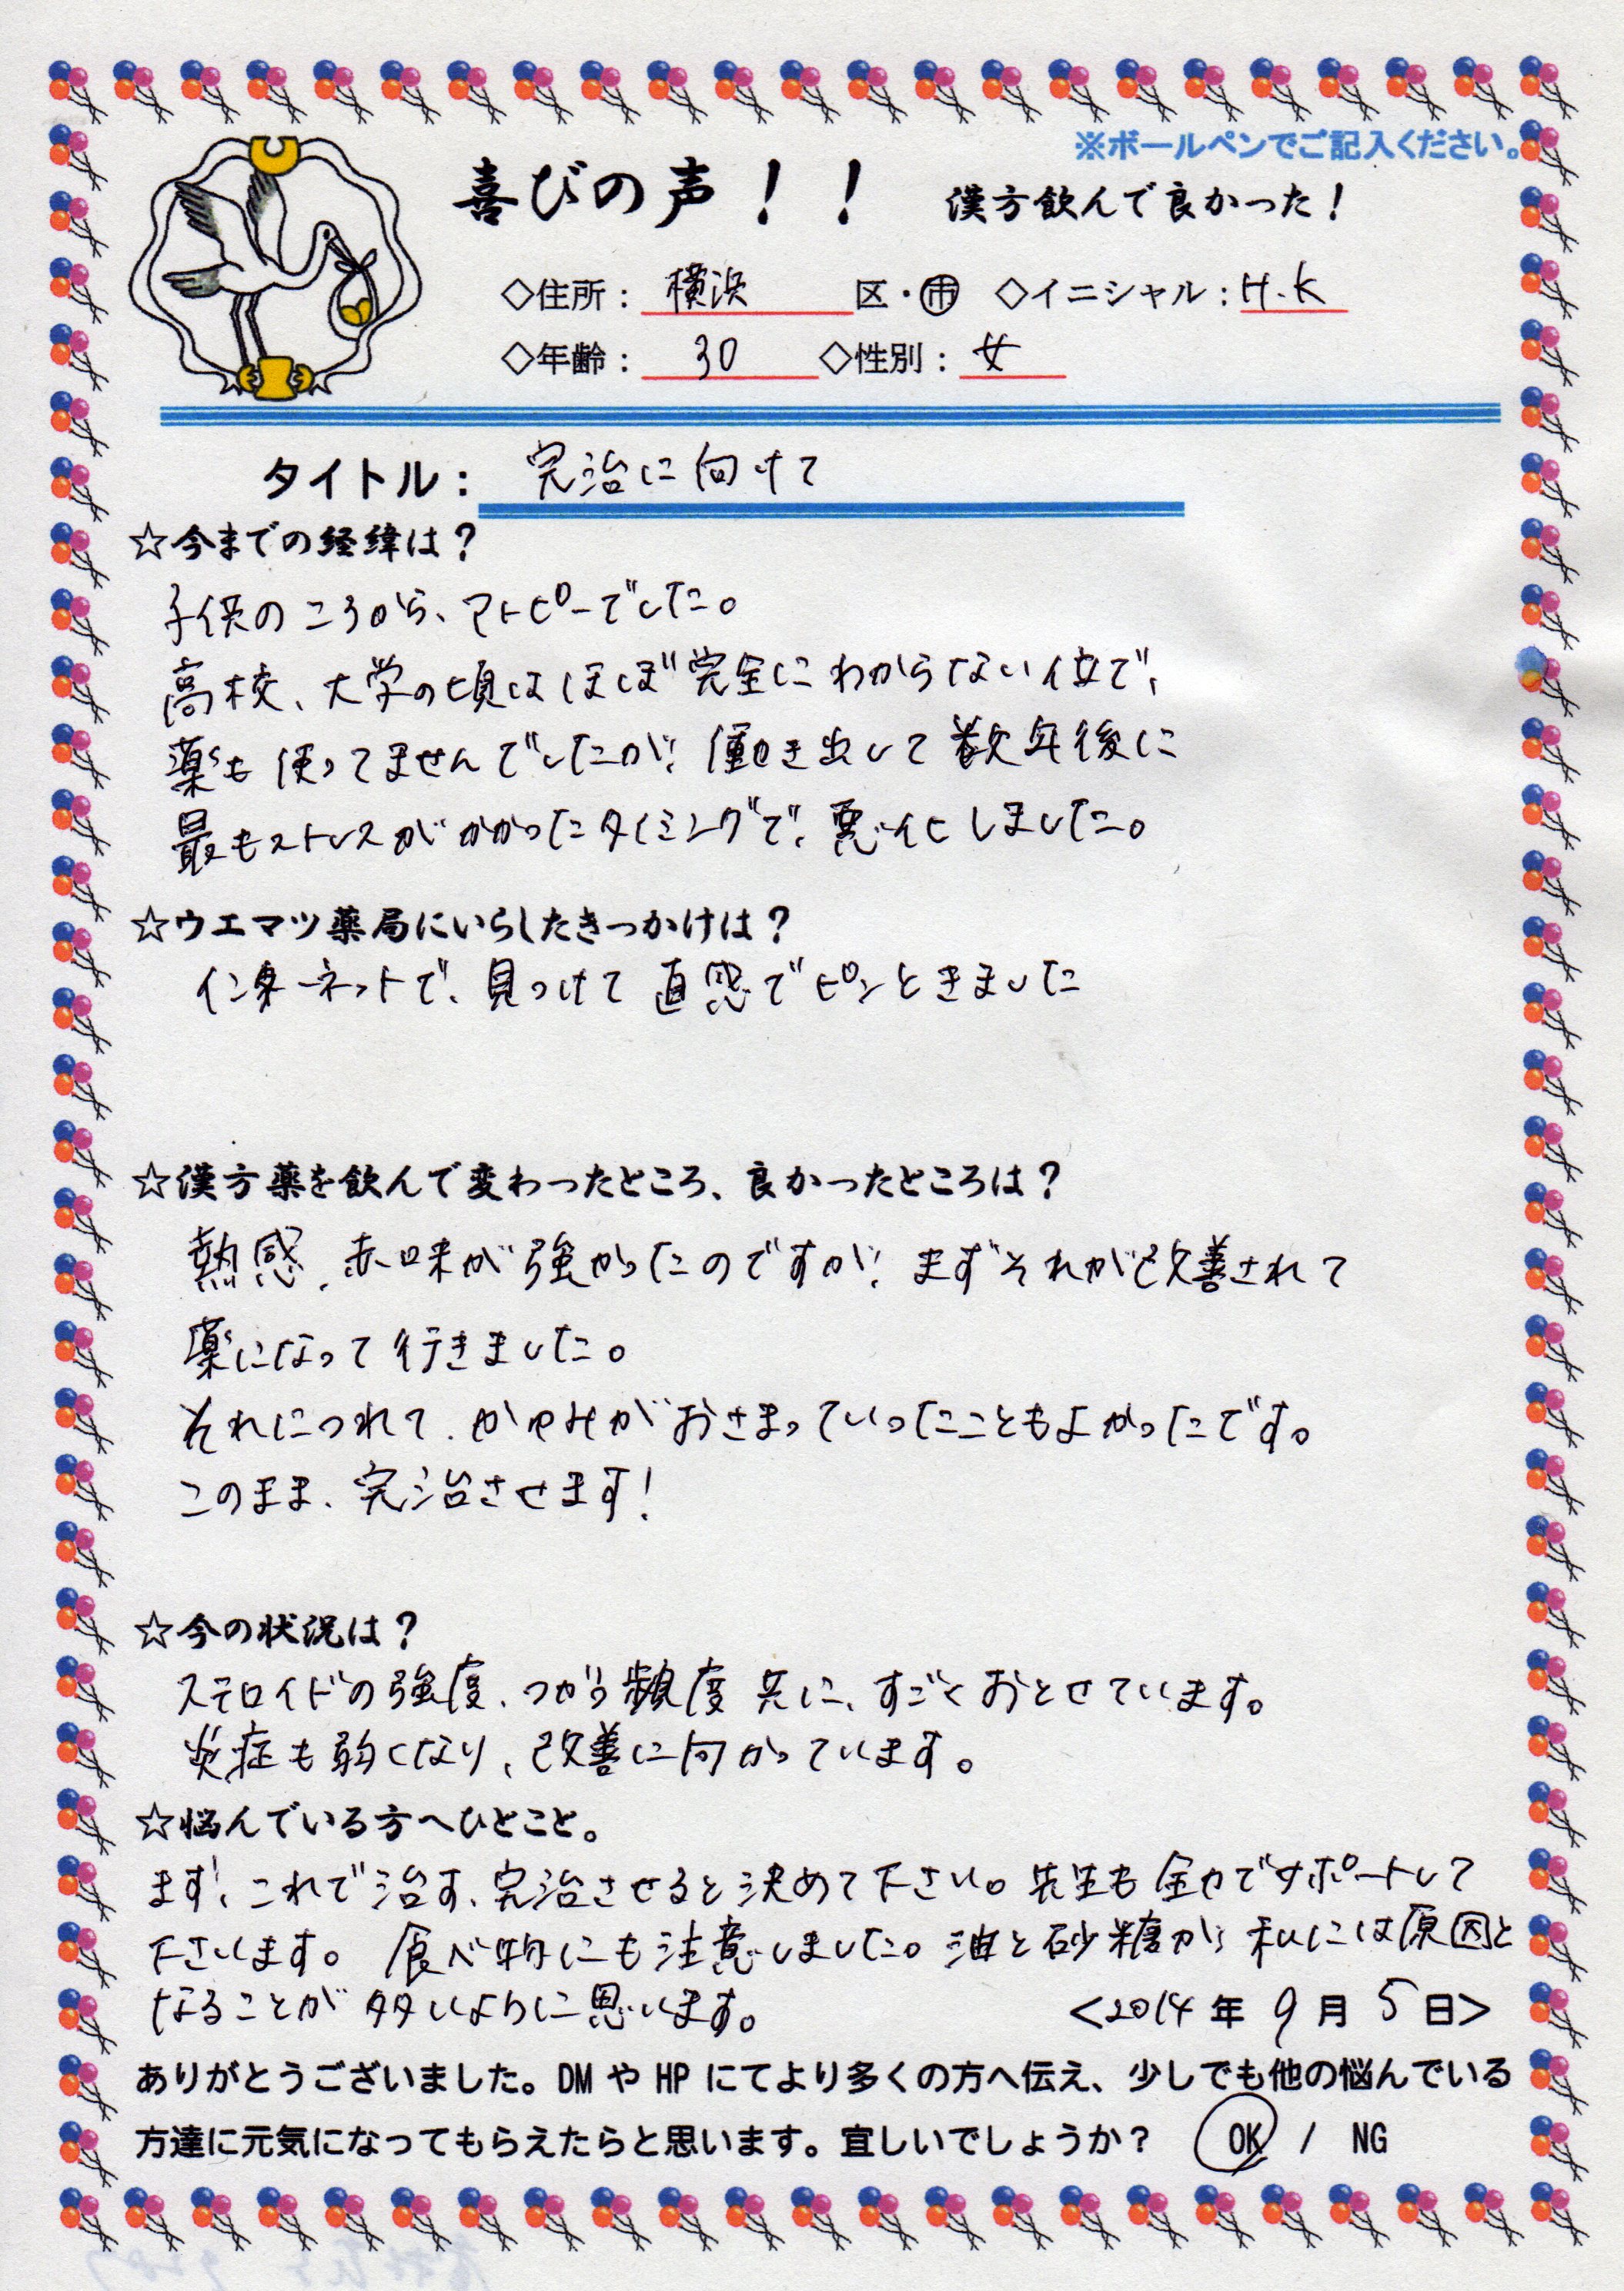 ※ボールペンでご記入ください。
喜びの声！！ 漢方飲んで良かった！
◇住所：横浜 区・市 ◇イニシャル：H.K
◇年齢：30 ◇性別：女
タイトル：完治に向けて
☆今までの経緯は？
子供のころから、アトピーでした。
高校、大学の頃はほぼ完全にわからない位で、
薬も使ってませんでしたが、働き出して数年後に
最もストレスがかかったタイミングで、悪化しました。
☆ウエマツ薬局にいらしたきっかけは？
インターネットで、見つけて直感でピンときました
☆漢方薬を飲んで変わったところ、良かったところは？
熱感、赤味が強かったのですが、まずそれが改善されて
薬になって行きました。
それにつれて、かゆみがおさまっていったこともよかったです。
このまま、完治させます！
☆今の状況は？
ステロイドの強度、つかう頻度共に、すごくおとせています。
炎症も弱くなり、改善に向かっています。
☆悩んでいる方へひとこと。
まず、これで治す、完治させると決めて下さい。先生も全力でサポートして
下さいます。食べ物にも注意しました。油と砂糖が私には原因と
なることが多いように思います。
<2014年9月5日>
ありがとうございました。DMやHPにてより多くの方へ伝え、少しでも他の悩んでいる
方達に元気になってもらえたらと思います。宜しいでしょうか？ OK / NG